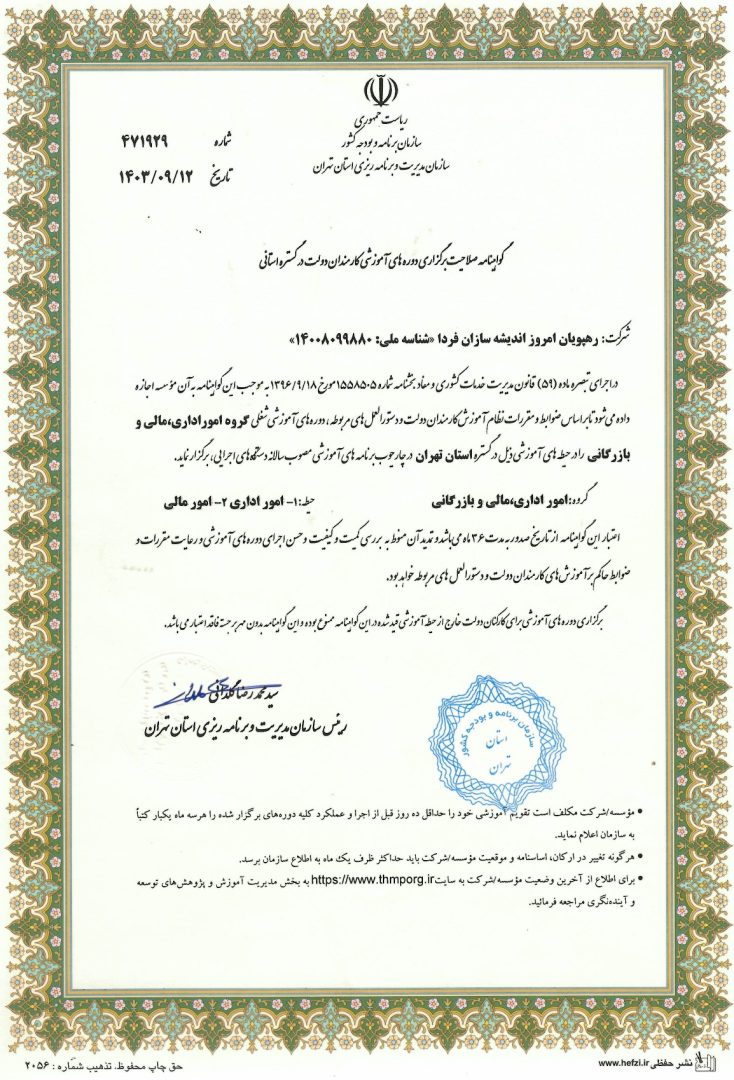 ریاست جمهوری
سازمان برنامه و بودجه کشور
سازمان مدیریت و برنامه ریزی استان تهران
شماره ۴۷۱۹۲۹
تاریخ ۱۴۰۳/۰۹/۱۲
گواهینامه صلاحیت برگزاری دوره های آموزشی کارمندان دولت در گستره استانی
شرکت: رهپویان امروز اندیشه سازان فردا «شناسه ملی: ۱۴۰۰۸۰۹۹۸۸۰»
در اجرای تبصره ماده (۵۹) قانون مدیریت خدمات کشوری و مفاد بخشنامه شماره ۱۵۵۸۵۰۵ مورخ ۱۳۹۶/۹/۱۸ به موجب این گواهینامه به آن مؤسسه اجازه
داده می شود تا بر اساس ضوابط و مقررات نظام آموزش کارمندان دولت و دستورالعمل های مربوطه، دوره های آموزشی شغلی گروه امور اداری، مالی و
بازرگانی را در حیطه های آموزشی ذیل در گستره استان تهران در چارچوب برنامه های آموزشی مصوب سالانه دستگاه های اجرایی، برگزار نماید.
گروه: امور اداری، مالی و بازرگانی حیطه: ۱- امور اداری ۲- امور مالی
اعتبار این گواهینامه از تاریخ صدور به مدت ۳۶ ماه می باشد و تمدید آن منوط به بررسی کمیت و کیفیت و حسن اجرای دوره های آموزشی و رعایت مقررات و
ضوابط حاکم بر آموزش های کارمندان دولت و دستورالعمل های مربوطه خواهد بود.
برگزاری دوره های آموزشی برای کارکنان دولت خارج از حیطه آموزشی قید شده در این گواهینامه ممنوع بوده و این گواهینامه بدون مهر برجسته فاقد اعتبار می باشد.
سید محمد رضا
رئیس سازمان مدیریت و برنامه ریزی استان تهران
سازمان برنامه و بودجه کشور
استان
تهران
• مؤسسه/شرکت مکلف است تقویم آموزشی خود را حداقل ده روز قبل از اجرا و عملکرد کلیه دوره‌های برگزار شده را هر سه ماه یکبار کتباً
به سازمان اعلام نماید.
• هرگونه تغییر در ارکان، اساسنامه و موقعیت مؤسسه/شرکت باید حداکثر ظرف یک ماه به اطلاع سازمان برسد.
• برای اطلاع از آخرین وضعیت مؤسسه/شرکت به سایت https://www.thmporg.ir به بخش مدیریت آموزش و پژوهش‌های توسعه
و آینده‌نگری مراجعه فرمائید.
نشر حفظی www.hefzi.ir
حق چاپ محفوظ، تذهیب شماره : ۲۰۵۶